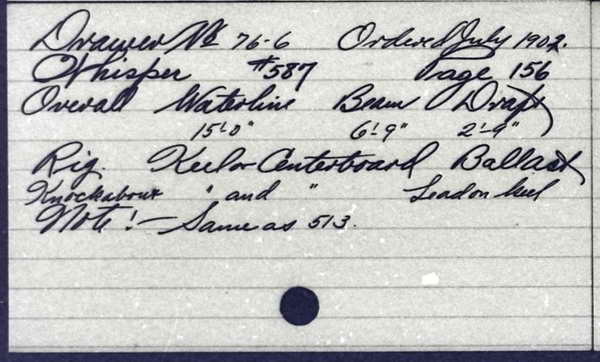 Drawer No 76-6 Ordered July 1902.
Whisper #587 Page 156
Overall Waterline Beam Draft
15'-0" 6'-9" 2'-9"
Rig Keel or Centerboard Ballast
Knockabout " and " Lead on keel
Note! - Same as 513.